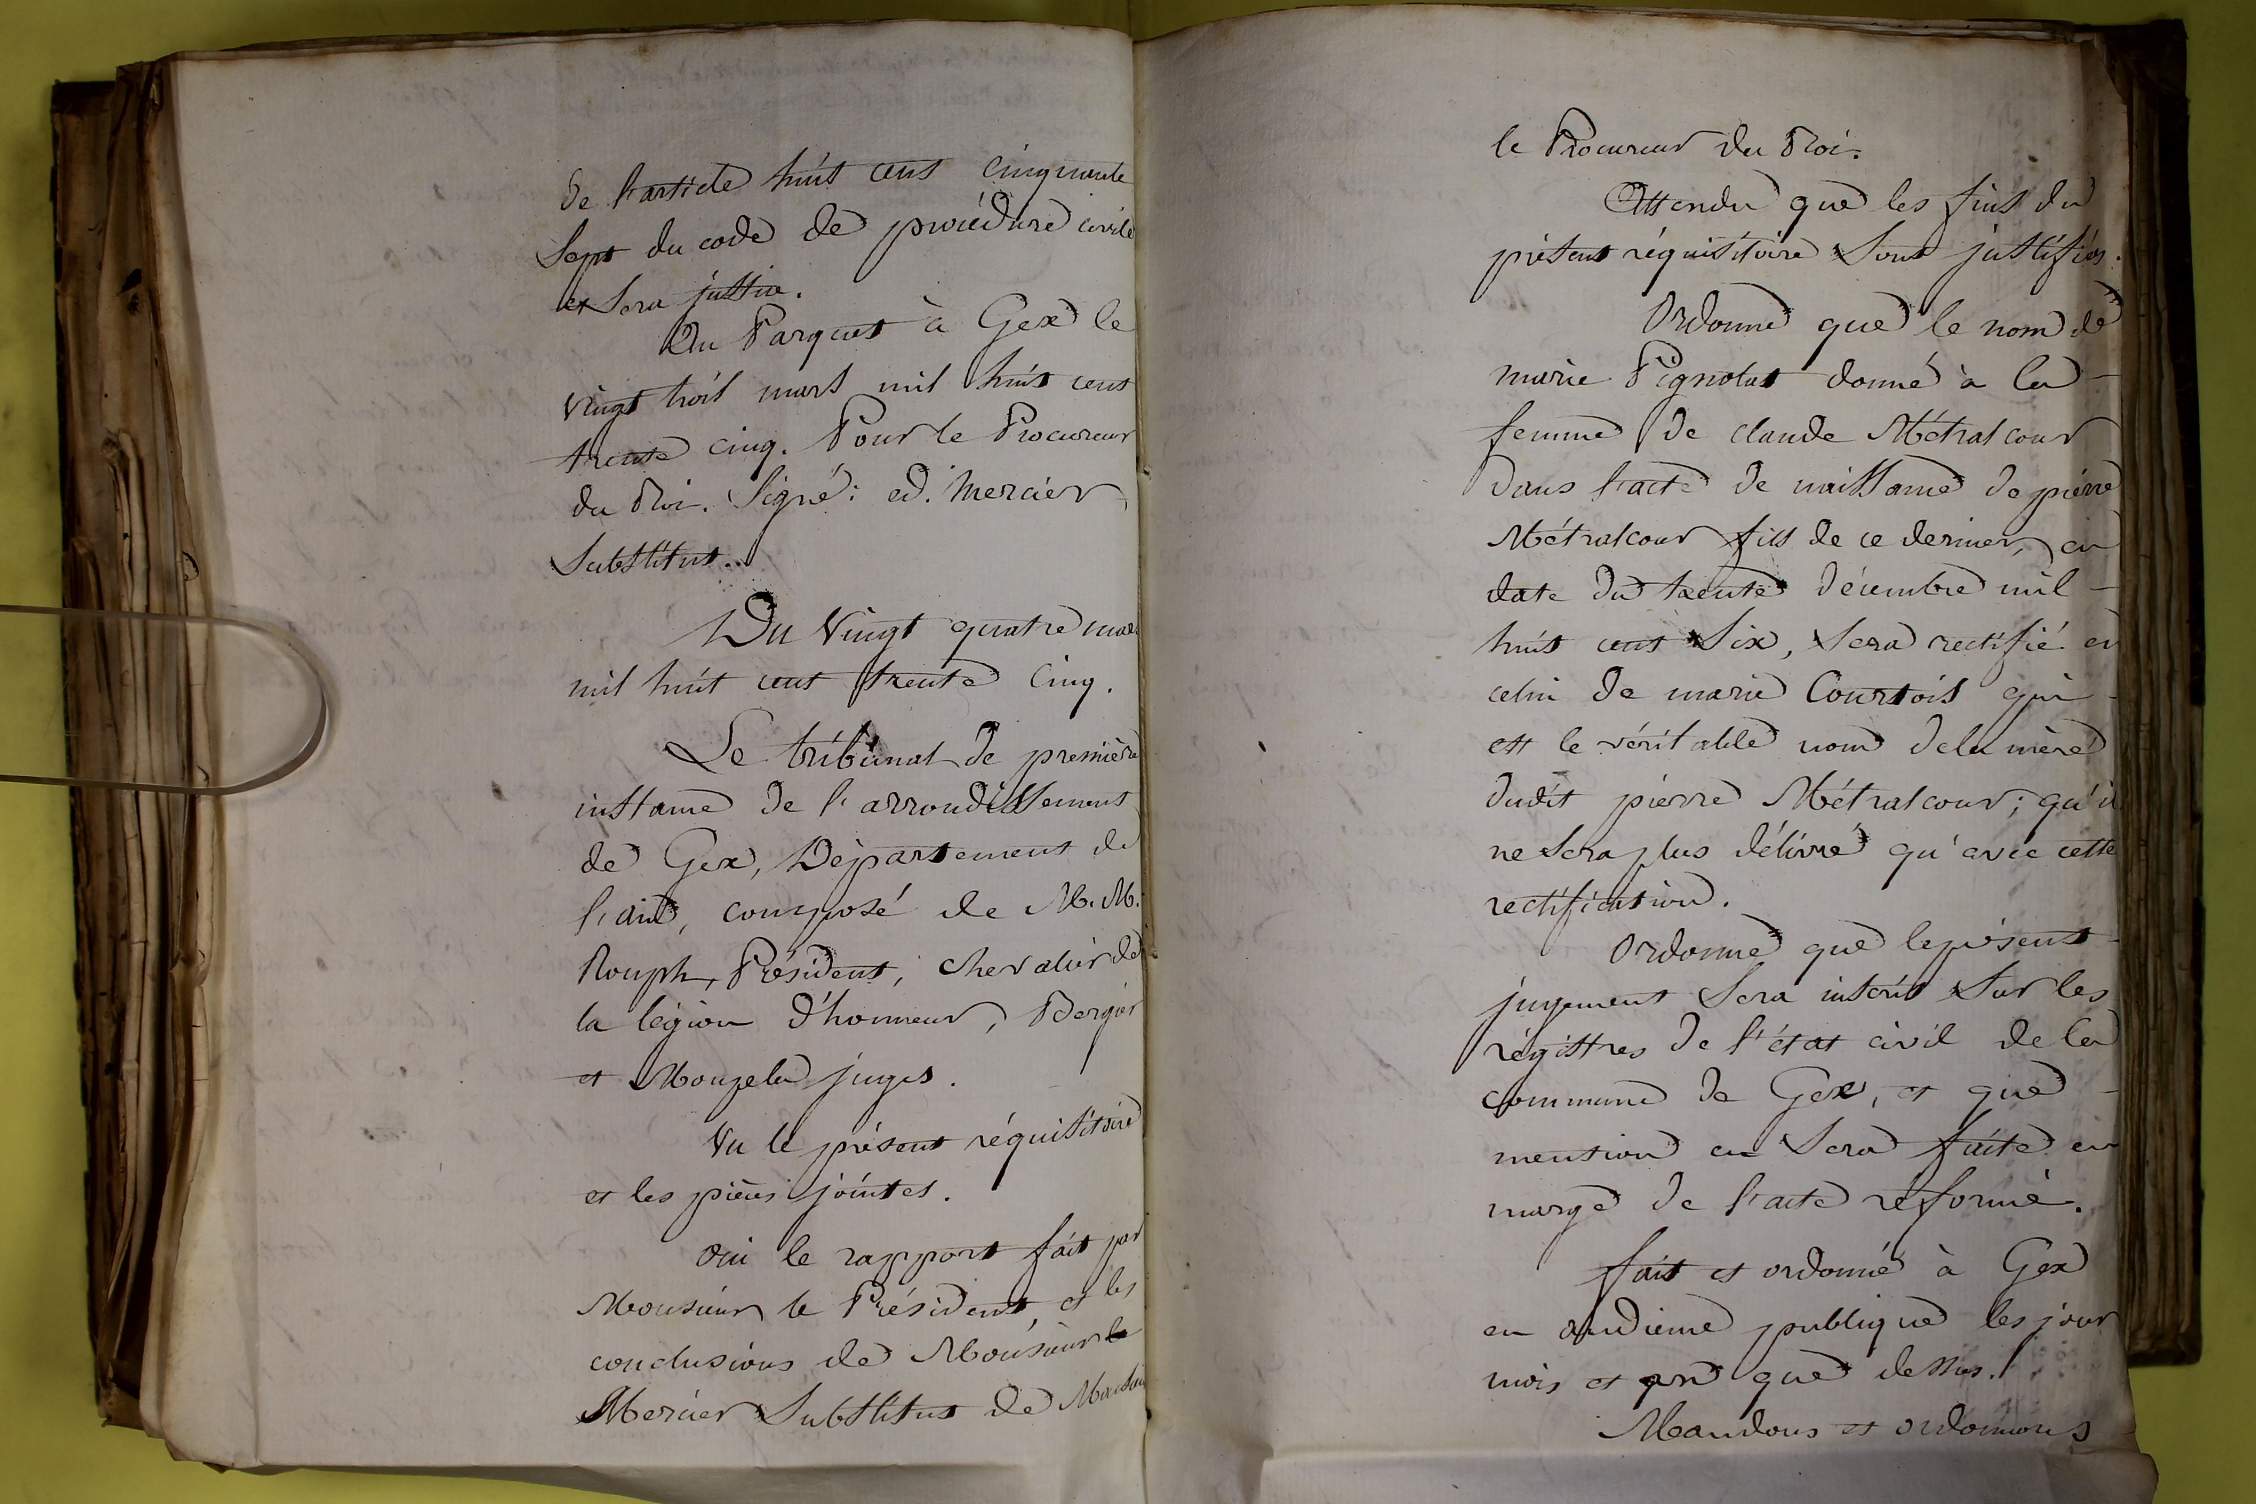 de l'article huit cent cinquante
Sept du code de procédure civile
et Sera justice.
Au Parquet à Gex le
vingt trois mars mil huit cent
trente cinq. Pour le Procureur
du Roi. Signé: ed. Mercier,
Substitut.
Du vingt quatre mars
mil huit cent trente cinq.
Le tribunal de première
instance de l'arrondissement
de Gex, Département de
l'ain, composé de M.M.
Rouph, Président, chevalier de
la légion d'honneur, Bergier
et Monzela juges.
Vu le présent réquisitoire
et les pièces jointes.
Oui le rapport fait par
Monsieur le Président, et les
conclusions de Monsieur
Mercier Substitut de Monsieur
le Procureur du Roi.
Attendu que les fins du
présent réquisitoire Sont justifiés.
Ordonne que le nom de
marie Pignolat donné à la
femme de claude Métralcour
dans l'acte de naissance de pierre
Métralcour fils de ce dernier, en
date du trente décembre mil
huit cent Six, Sera rectifié en
celui de marie Courtois qui
est le véritable nom de la mère
dudit pierre Métralcour; qu'il
ne Sera plus délivré qu'avec cette
rectification.
Ordonne que le présent
jugement Sera inscrit Sur les
régistres de l'état civil de la
commune de Gex, et que
mention en Sera faite en
marge de l'acte réformé.
fait et ordonné à Gex
en audience publique les jour
mois et an que dessus.
Mandons et ordonnons